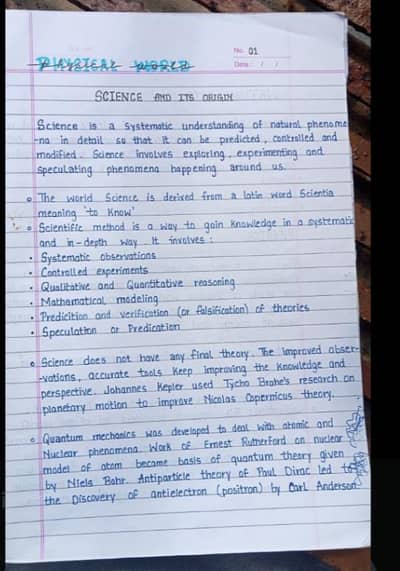 No. 01
Date: / /
PHYSICAL WORLD
SCIENCE AND ITS ORIGIN
Science is a systematic understanding of natural phenome
-na in detail so that it can be predicted, controlled and
modified. Science involves exploring, experimenting and
speculating phenomena happening around us.
The world Science is derived from a latin word Scientia
meaning 'to know'
Scientific method is a way to gain knowledge in a systematic
and in-depth way. It involves:
• Systematic observations
• Controlled experiments
• Qualitative and Quantitative reasoning
• Mathamatical modeling
• Predicition and verification (or falsification) of theories
• Speculation or Predication
Science does not have any final theory. The improved obser-
-vations, accurate tools keep improving the knowledge and
perspective. Johannes Kepler used Tycho Brahe's research on
planetary motion to improve Nicolas Copernicus theory.
Quantum mechanics was developed to deal with atomic and
Nuclear phenomena. Work of Ernest Rutherford on nuclear
model of atom became basis of quantum theory given
by Niels Bohr. Antiparticle theory of Paul Dirac led to
the Discovery of antielectron (positron) by Carl Anderson